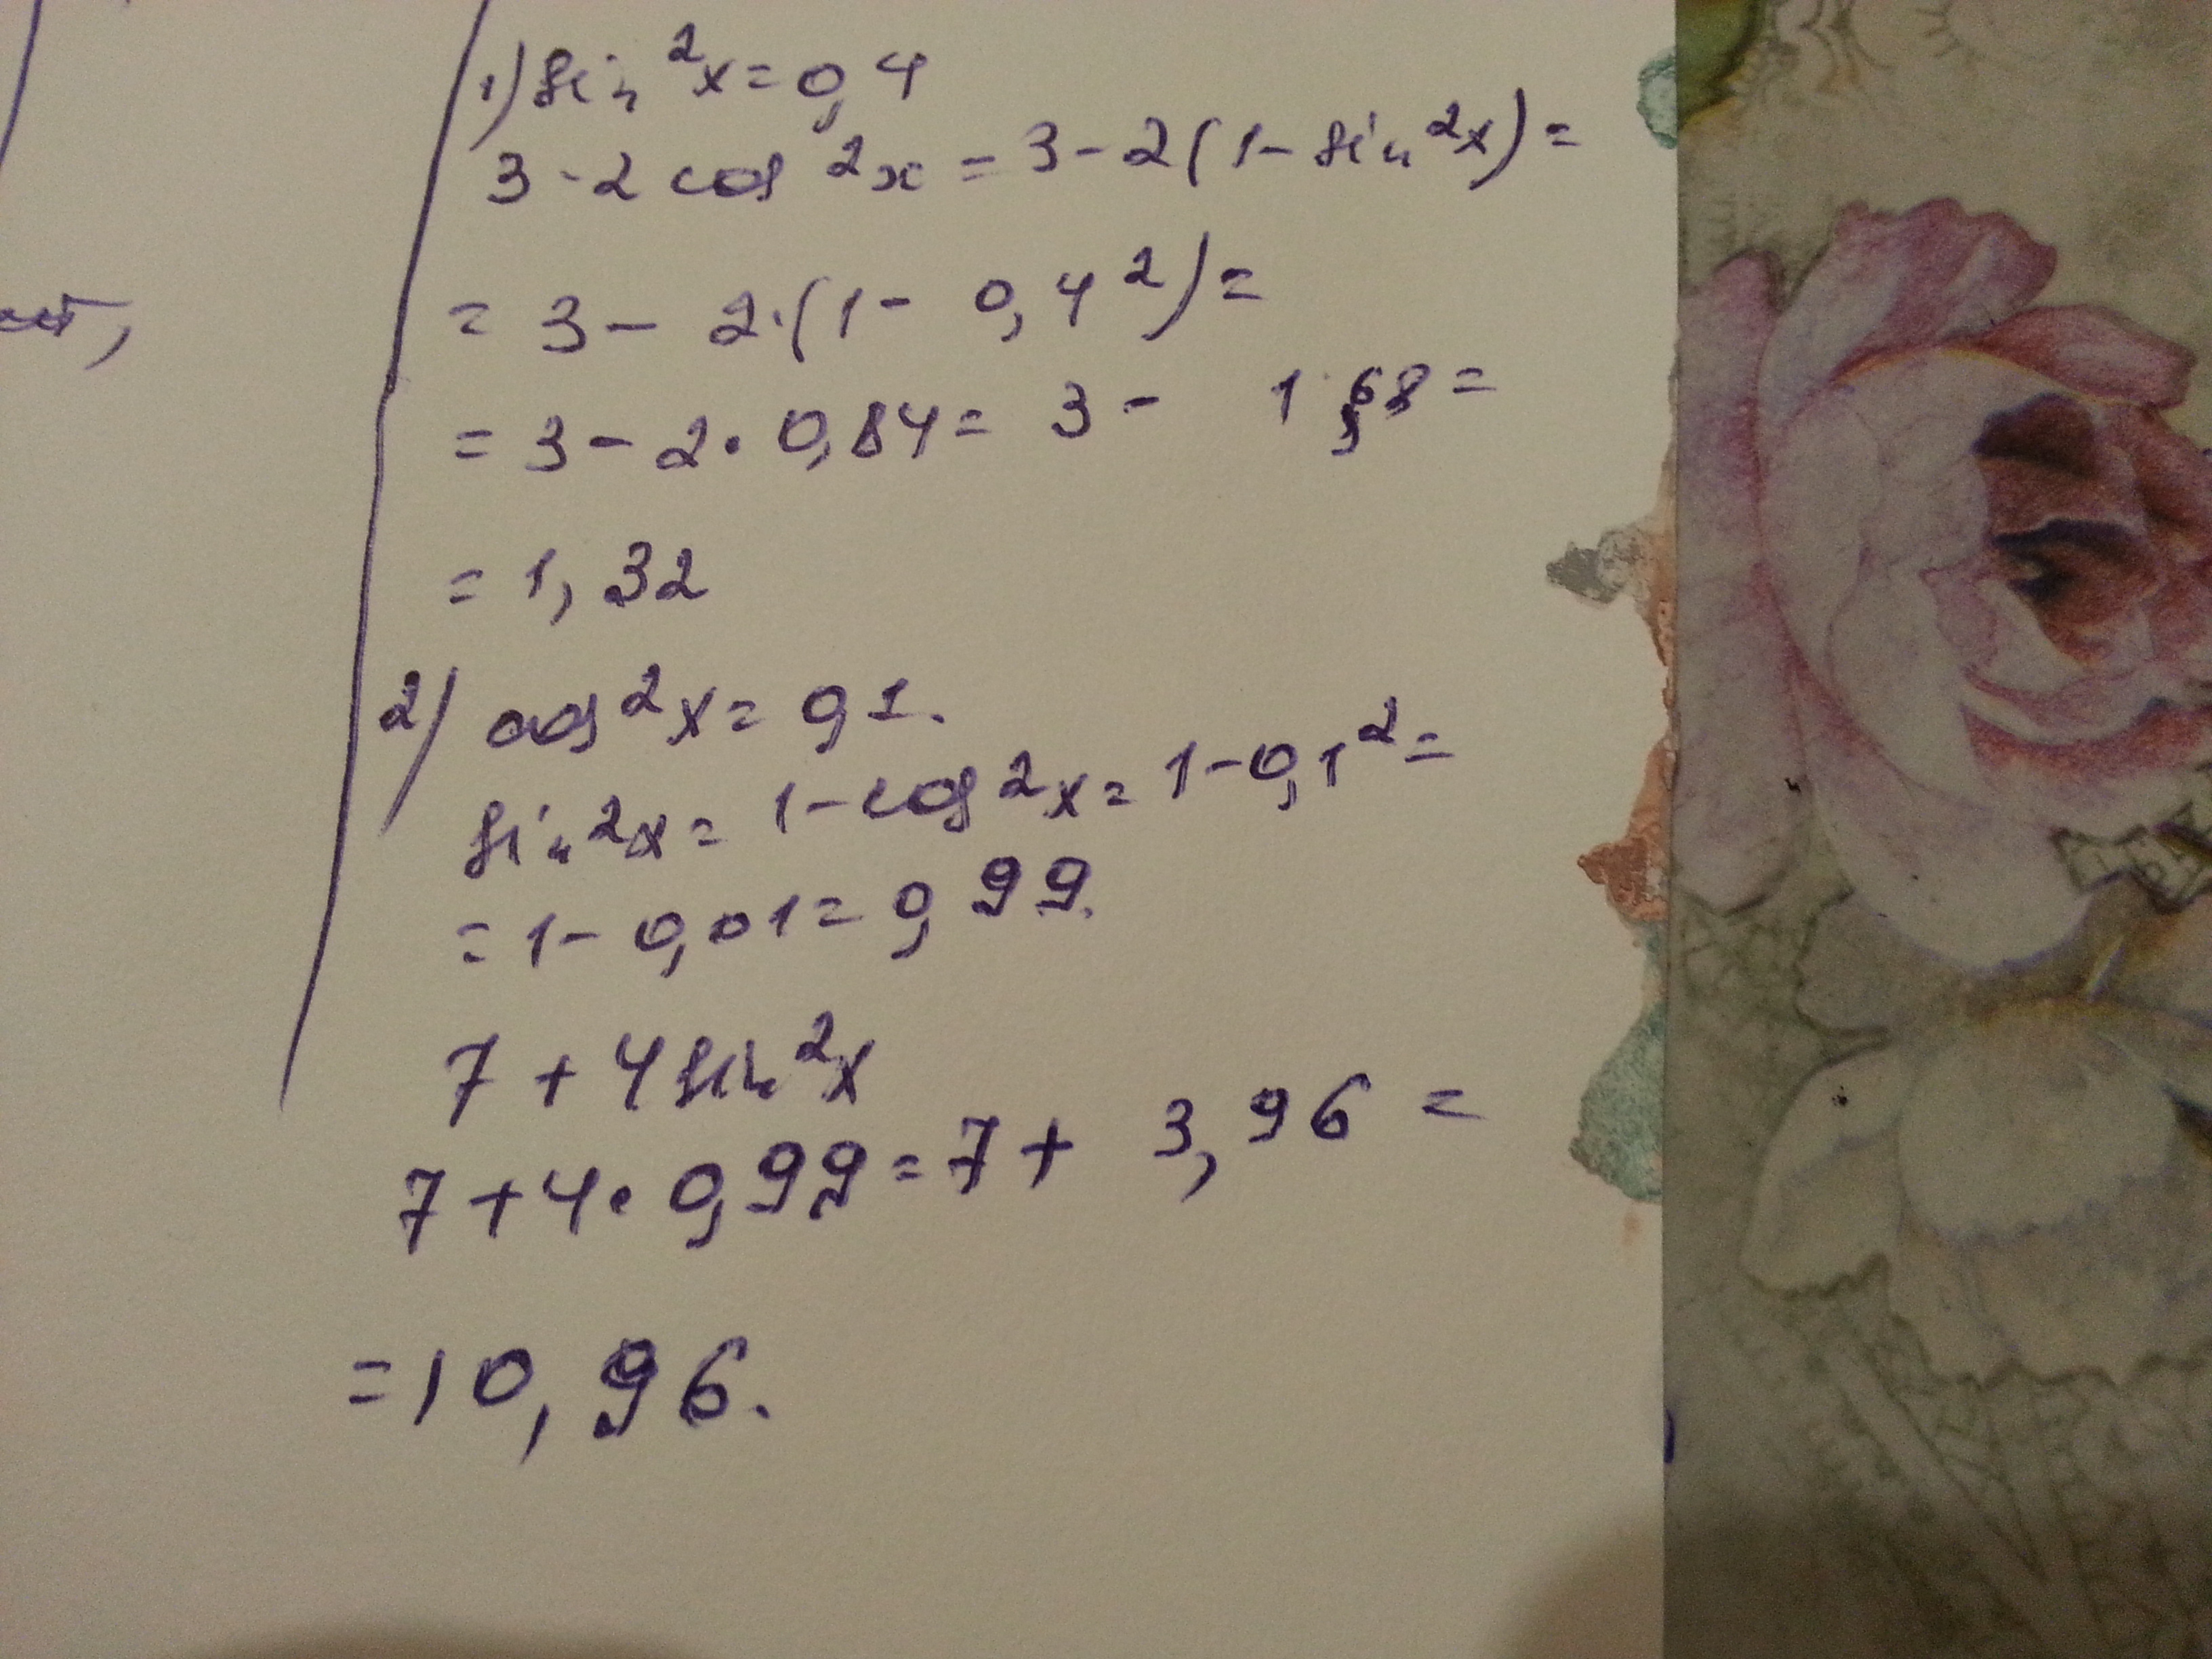 1) sin²x = 0,4
3 - 2 cos²x = 3 - 2(1 - sin²x) =
= 3 - 2·(1 - 0,4²) =
= 3 - 2·0,84 = 3 - 1,68 =
= 1,32
2) cos²x = 0,1.
sin²x = 1 - cos²x = 1 - 0,1² =
= 1 - 0,01 = 0,99.
7 + 4 sin²x
7 + 4·0,99 = 7 + 3,96 =
= 10,96.